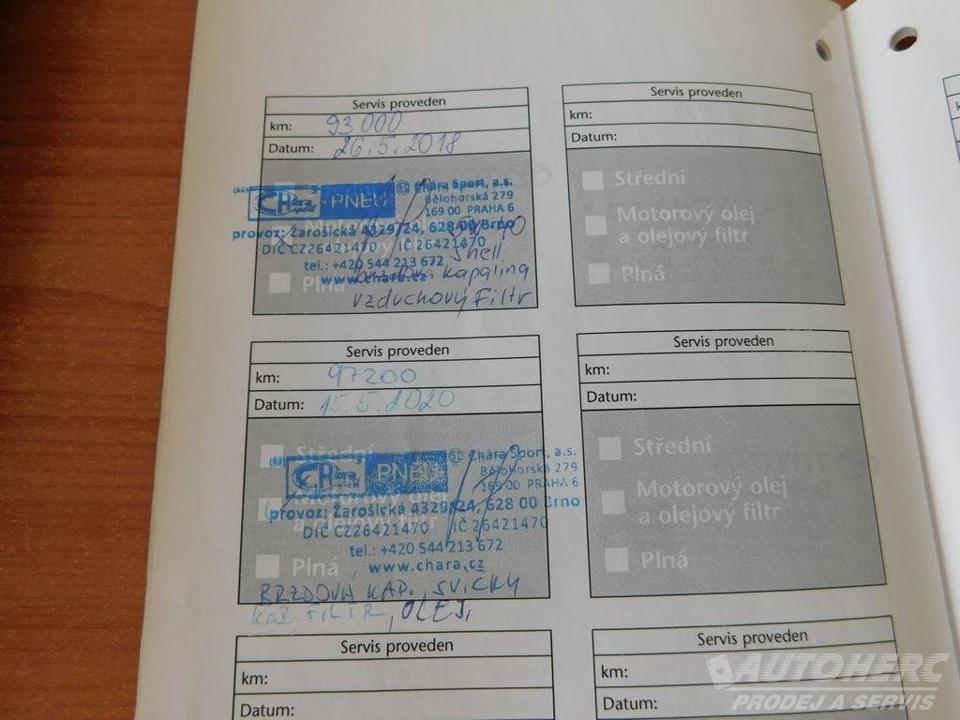 Servis proveden
km: 93 000
Datum: 26.5.2018
CHára PNEU
Chára Sport, a.s.
Bělohorská 279
169 00 PRAHA 6
provoz: Žarošická 4329/24, 628 00 Brno
DIČ CZ26421470 IČ 26421470
tel.: +420 544 213 672
Shell
www.chara.cz
brzdová kapalina
Plná
vzduchový Filtr
Servis proveden
km:
Datum:
Střední
Motorový olej
a olejový filtr
Plná
Servis proveden
km: 97200
Datum: 15.5.2020
Střední
CHára PNEU
Chára Sport, a.s.
Bělohorská 279
169 00 PRAHA 6
Motorový olej
provoz: Žarošická 4329/24, 628 00 Brno
a olejový filtr
DIČ CZ26421470 IČ 26421470
tel.: +420 544 213 672
www.chara.cz
Plná
BRZDOVÁ KAP., SVÍČKY
KAB. FILTR, OLEJ,
Servis proveden
km:
Datum:
Střední
Motorový olej
a olejový filtr
Plná
Servis proveden
km:
Datum:
Servis proveden
km:
Datum:
AUTOHERC
PRODEJ A SERVIS